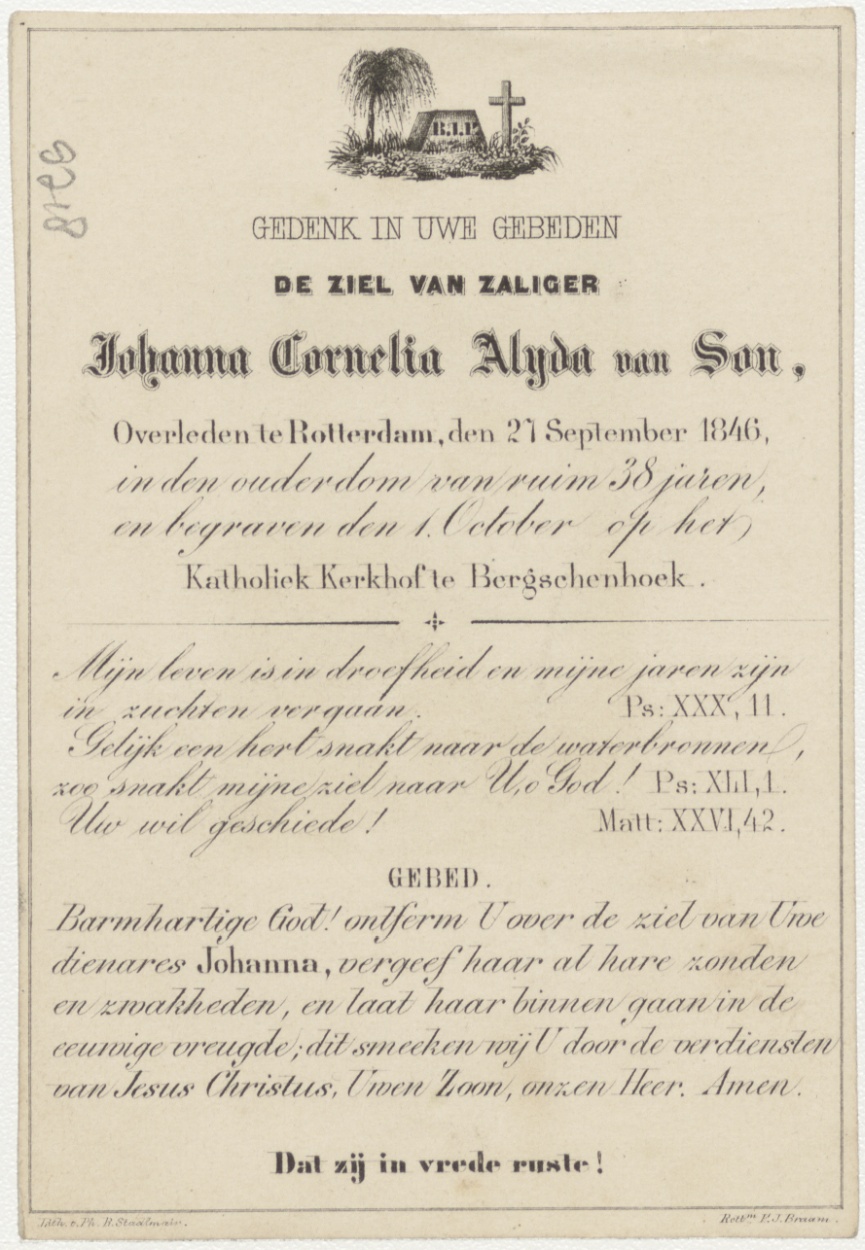 R.I.P.
GEDENK IN UWE GEBEDEN
DE ZIEL VAN ZALIGER
Johanna Cornelia Alyda van Son,
Overleden te Rotterdam, den 27 September 1846,
in den ouderdom van ruim 38 jaren,
en begraven den 1. October op het
Katholiek Kerkhof te Bergschenhoek.
Mijn leven is in droefheid en mijne jaren zijn
in zuchten vergaan. Ps: XXX, 11.
Gelijk een hert snakt naar de waterbronnen,
zoo snakt mijne ziel naar U, o God! Ps: XLI, 1.
Uw wil geschiede! Matt: XXVI, 42.
GEBED.
Barmhartige God! ontferm U over de ziel van Uwe
dienares Johanna, vergeef haar al hare zonden
en zwakheden, en laat haar binnen gaan in de
eeuwige vreugde; dit smeeken wij U door de verdiensten
van Jesus Christus, Uwen Zoon, onzen Heer. Amen.
Dat zij in vrede ruste!
Lith. v. Ph. B. Staalmair.
Rottm. P. J. Braam.